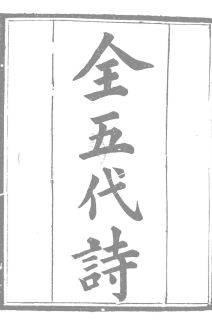 全五代詩